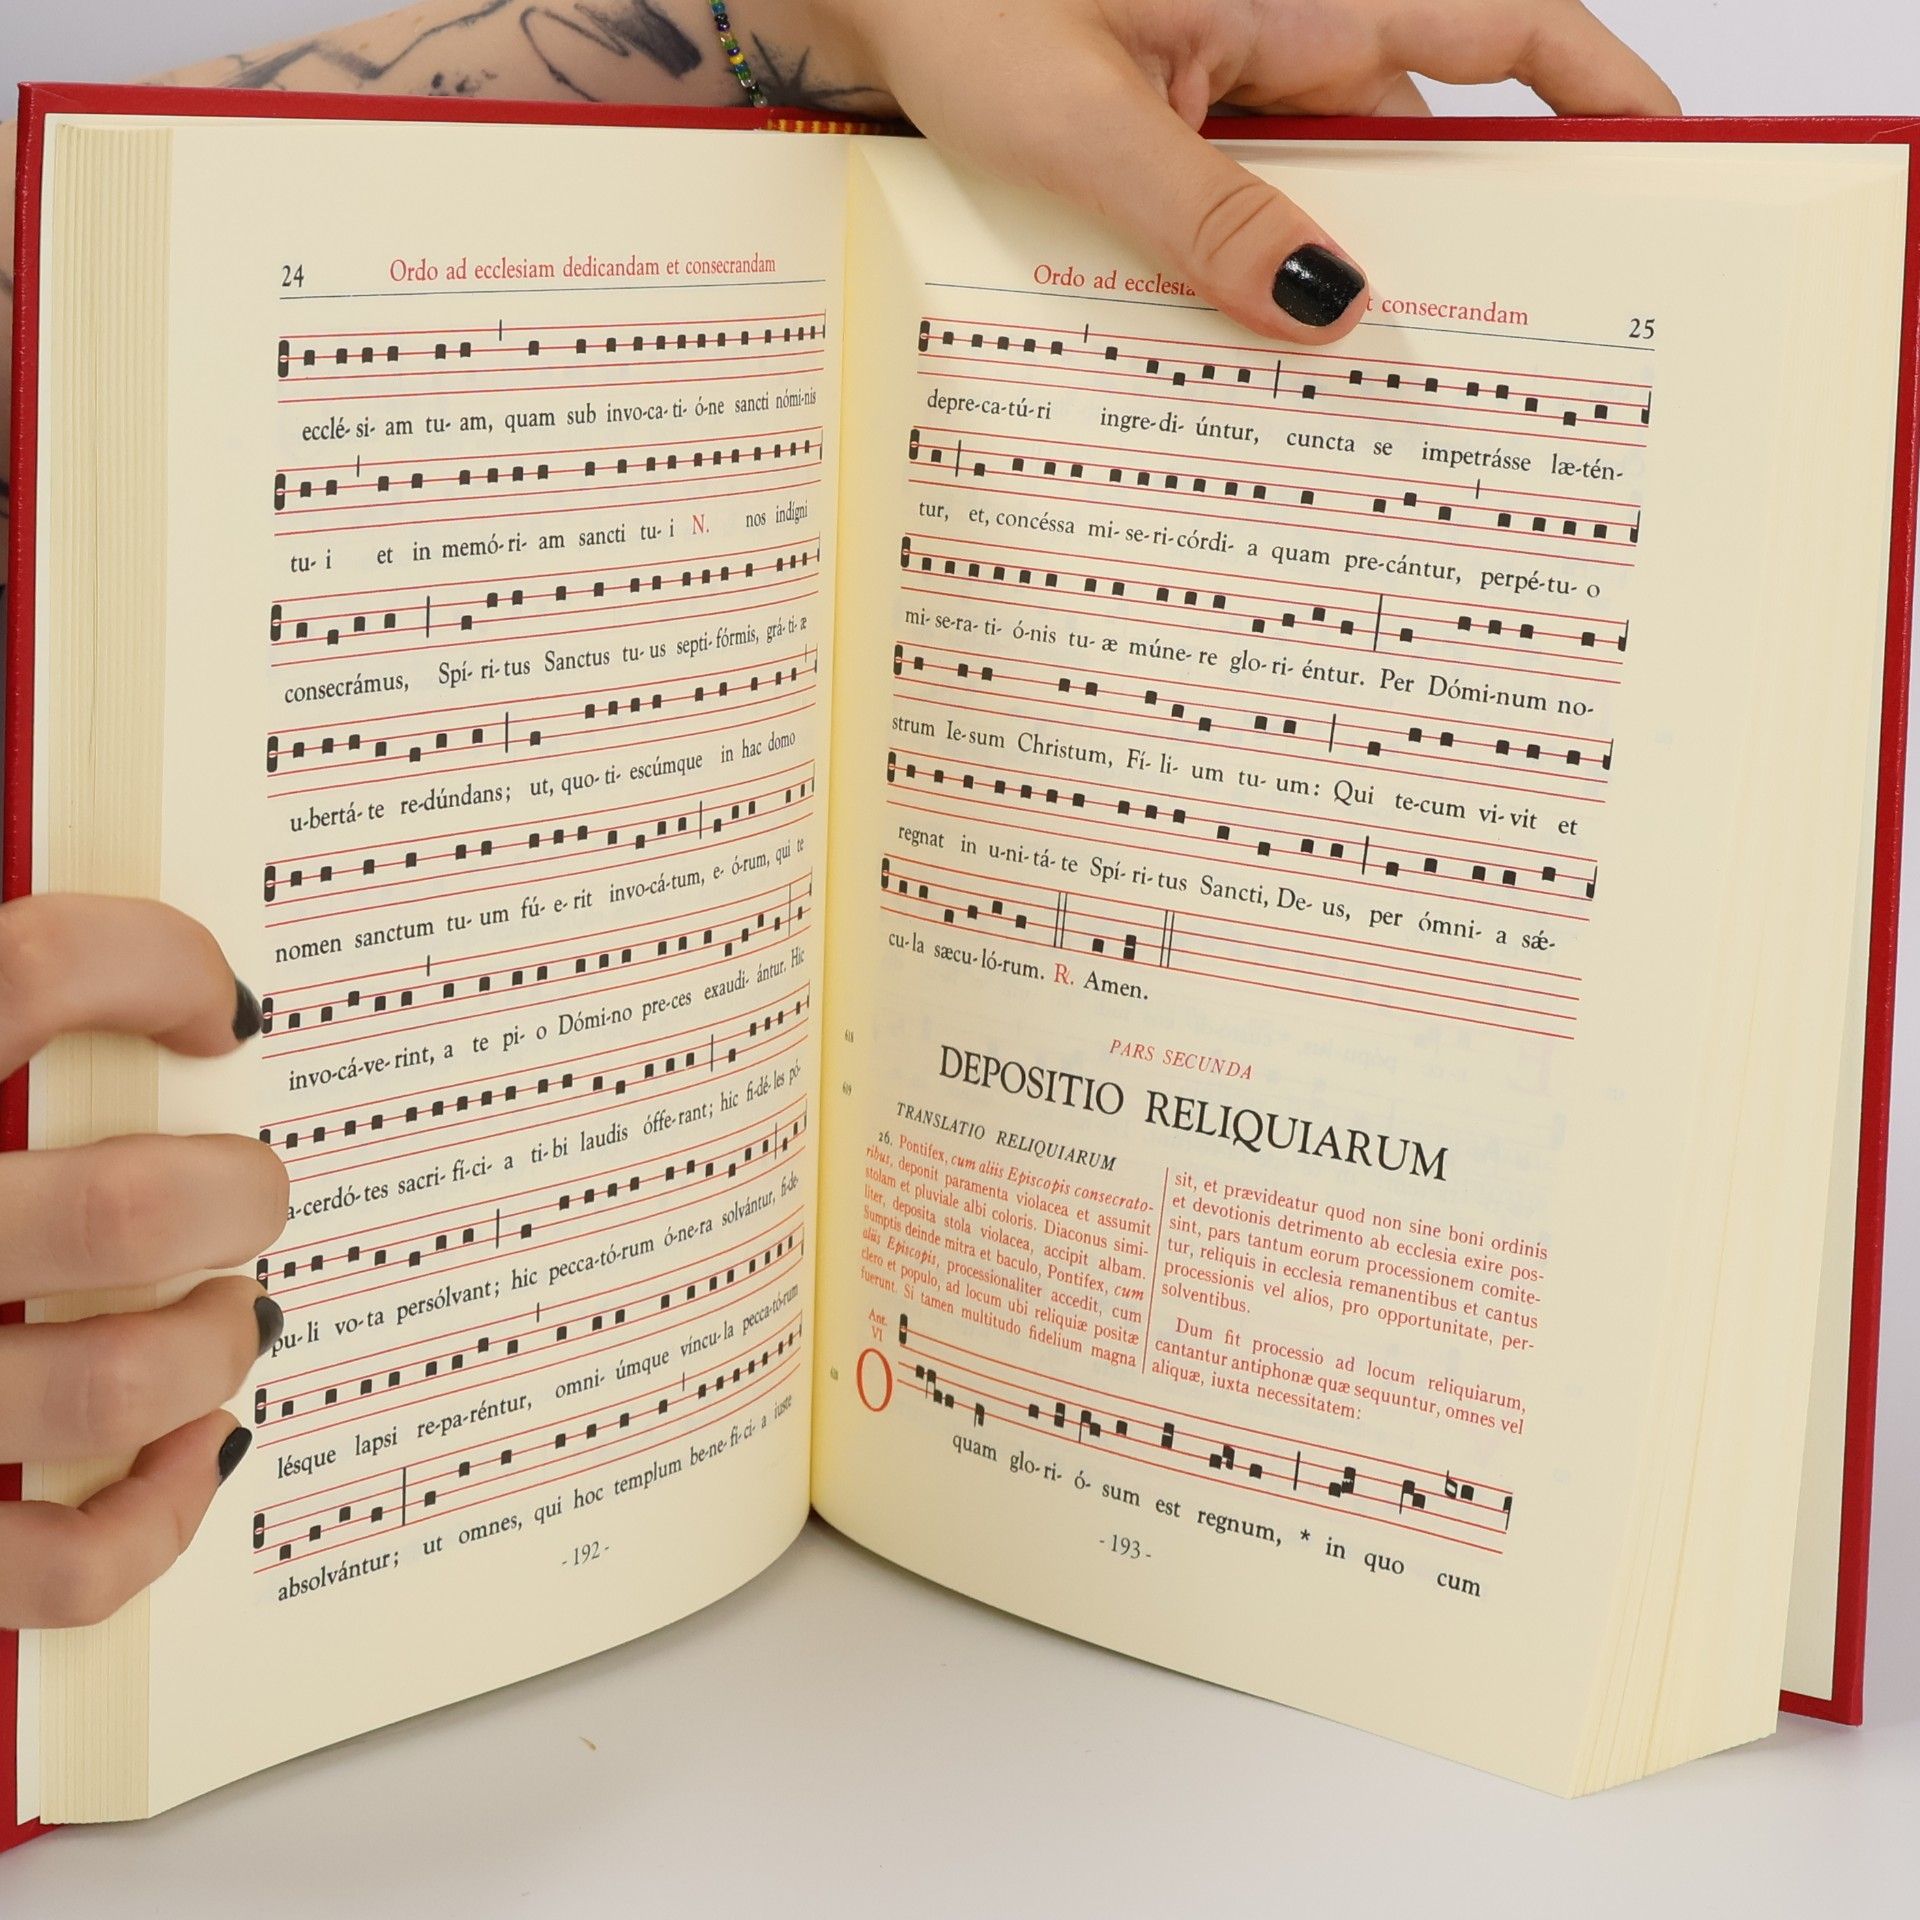 24 Ordo ad ecclesiam dedicandam et consecrandam
ecclé- si- am tu- am, quam sub invo-ca- ti- ó-ne sancti nómi-nis
tu- i et in memó- ri- am sancti tu- i N. nos indígni
consecrámus, Spí- ri- tus Sanctus tu- us septi- fórmis, grá- ti- æ
u-bertá- te re-dúndans; ut, quo- ti- escúmque in hac domo
nomen sanctum tu- um fú- e- rit invo-cá-tum, e- ó-rum, qui te
invo-cá-ve- rint, a te pi- o Dómi-no pre-ces exaudi- ántur. Hic
a-cerdó-tes sacri- fí-ci- a ti-bi laudis óffe-rant; hic fi-dé-les pó-
pu- li vo-ta persólvant; hic pecca-tó-rum ó-ne-ra solvántur, fi-de-
lésque lapsi re-pa-réntur, omni- úmque víncu-la pecca-tó-rum
absolvántur; ut omnes, qui hoc templum be-ne- fi- ci- a iuste
- 192 -
Ordo ad consecrandam 25
depre-ca-tú-ri ingre-di- úntur, cuncta se impetrásse læ-tén-
tur, et, concéssa mi- se-ri-córdi- a quam pre-cántur, perpé-tu- o
mi- se-ra- ti- ó-nis tu- æ múne- re glo- ri- éntur. Per Dómi-num no-
strum Ie-sum Christum, Fí- li- um tu- um: Qui te-cum vi- vit et
regnat in u-ni- tá- te Spí- ri- tus Sancti, De- us, per ómni- a sǽ-
cu-la sæcu-ló-rum. R. Amen.
618
PARS SECUNDA
619
DEPOSITIO RELIQUIARUM
TRANSLATIO RELIQUIARUM
26. Pontifex, cum aliis Episcopis consecrato-
ribus, deponit paramenta violacea et assumit
stolam et pluviale albi coloris. Diaconus simi-
liter, deposita stola violacea, accipit albam.
Sumptis deinde mitra et baculo, Pontifex, cum
aliis Episcopis, processionaliter accedit, cum
clero et populo, ad locum ubi reliquiæ positæ
fuerunt. Si tamen multitudo fidelium magna
sit, et prævideatur quod non sine boni ordinis
et devotionis detrimento ab ecclesia exire pos-
sint, pars tantum eorum processionem comite-
tur, reliquis in ecclesia remanentibus et cantus
processionis vel alios, pro opportunitate, per-
solventibus.
Dum fit processio ad locum reliquiarum,
cantantur antiphonæ quæ sequuntur, omnes vel
aliquæ, iuxta necessitatem:
620
Ant.
VI
O quam glo- ri- ó- sum est regnum, * in quo cum
- 193 -